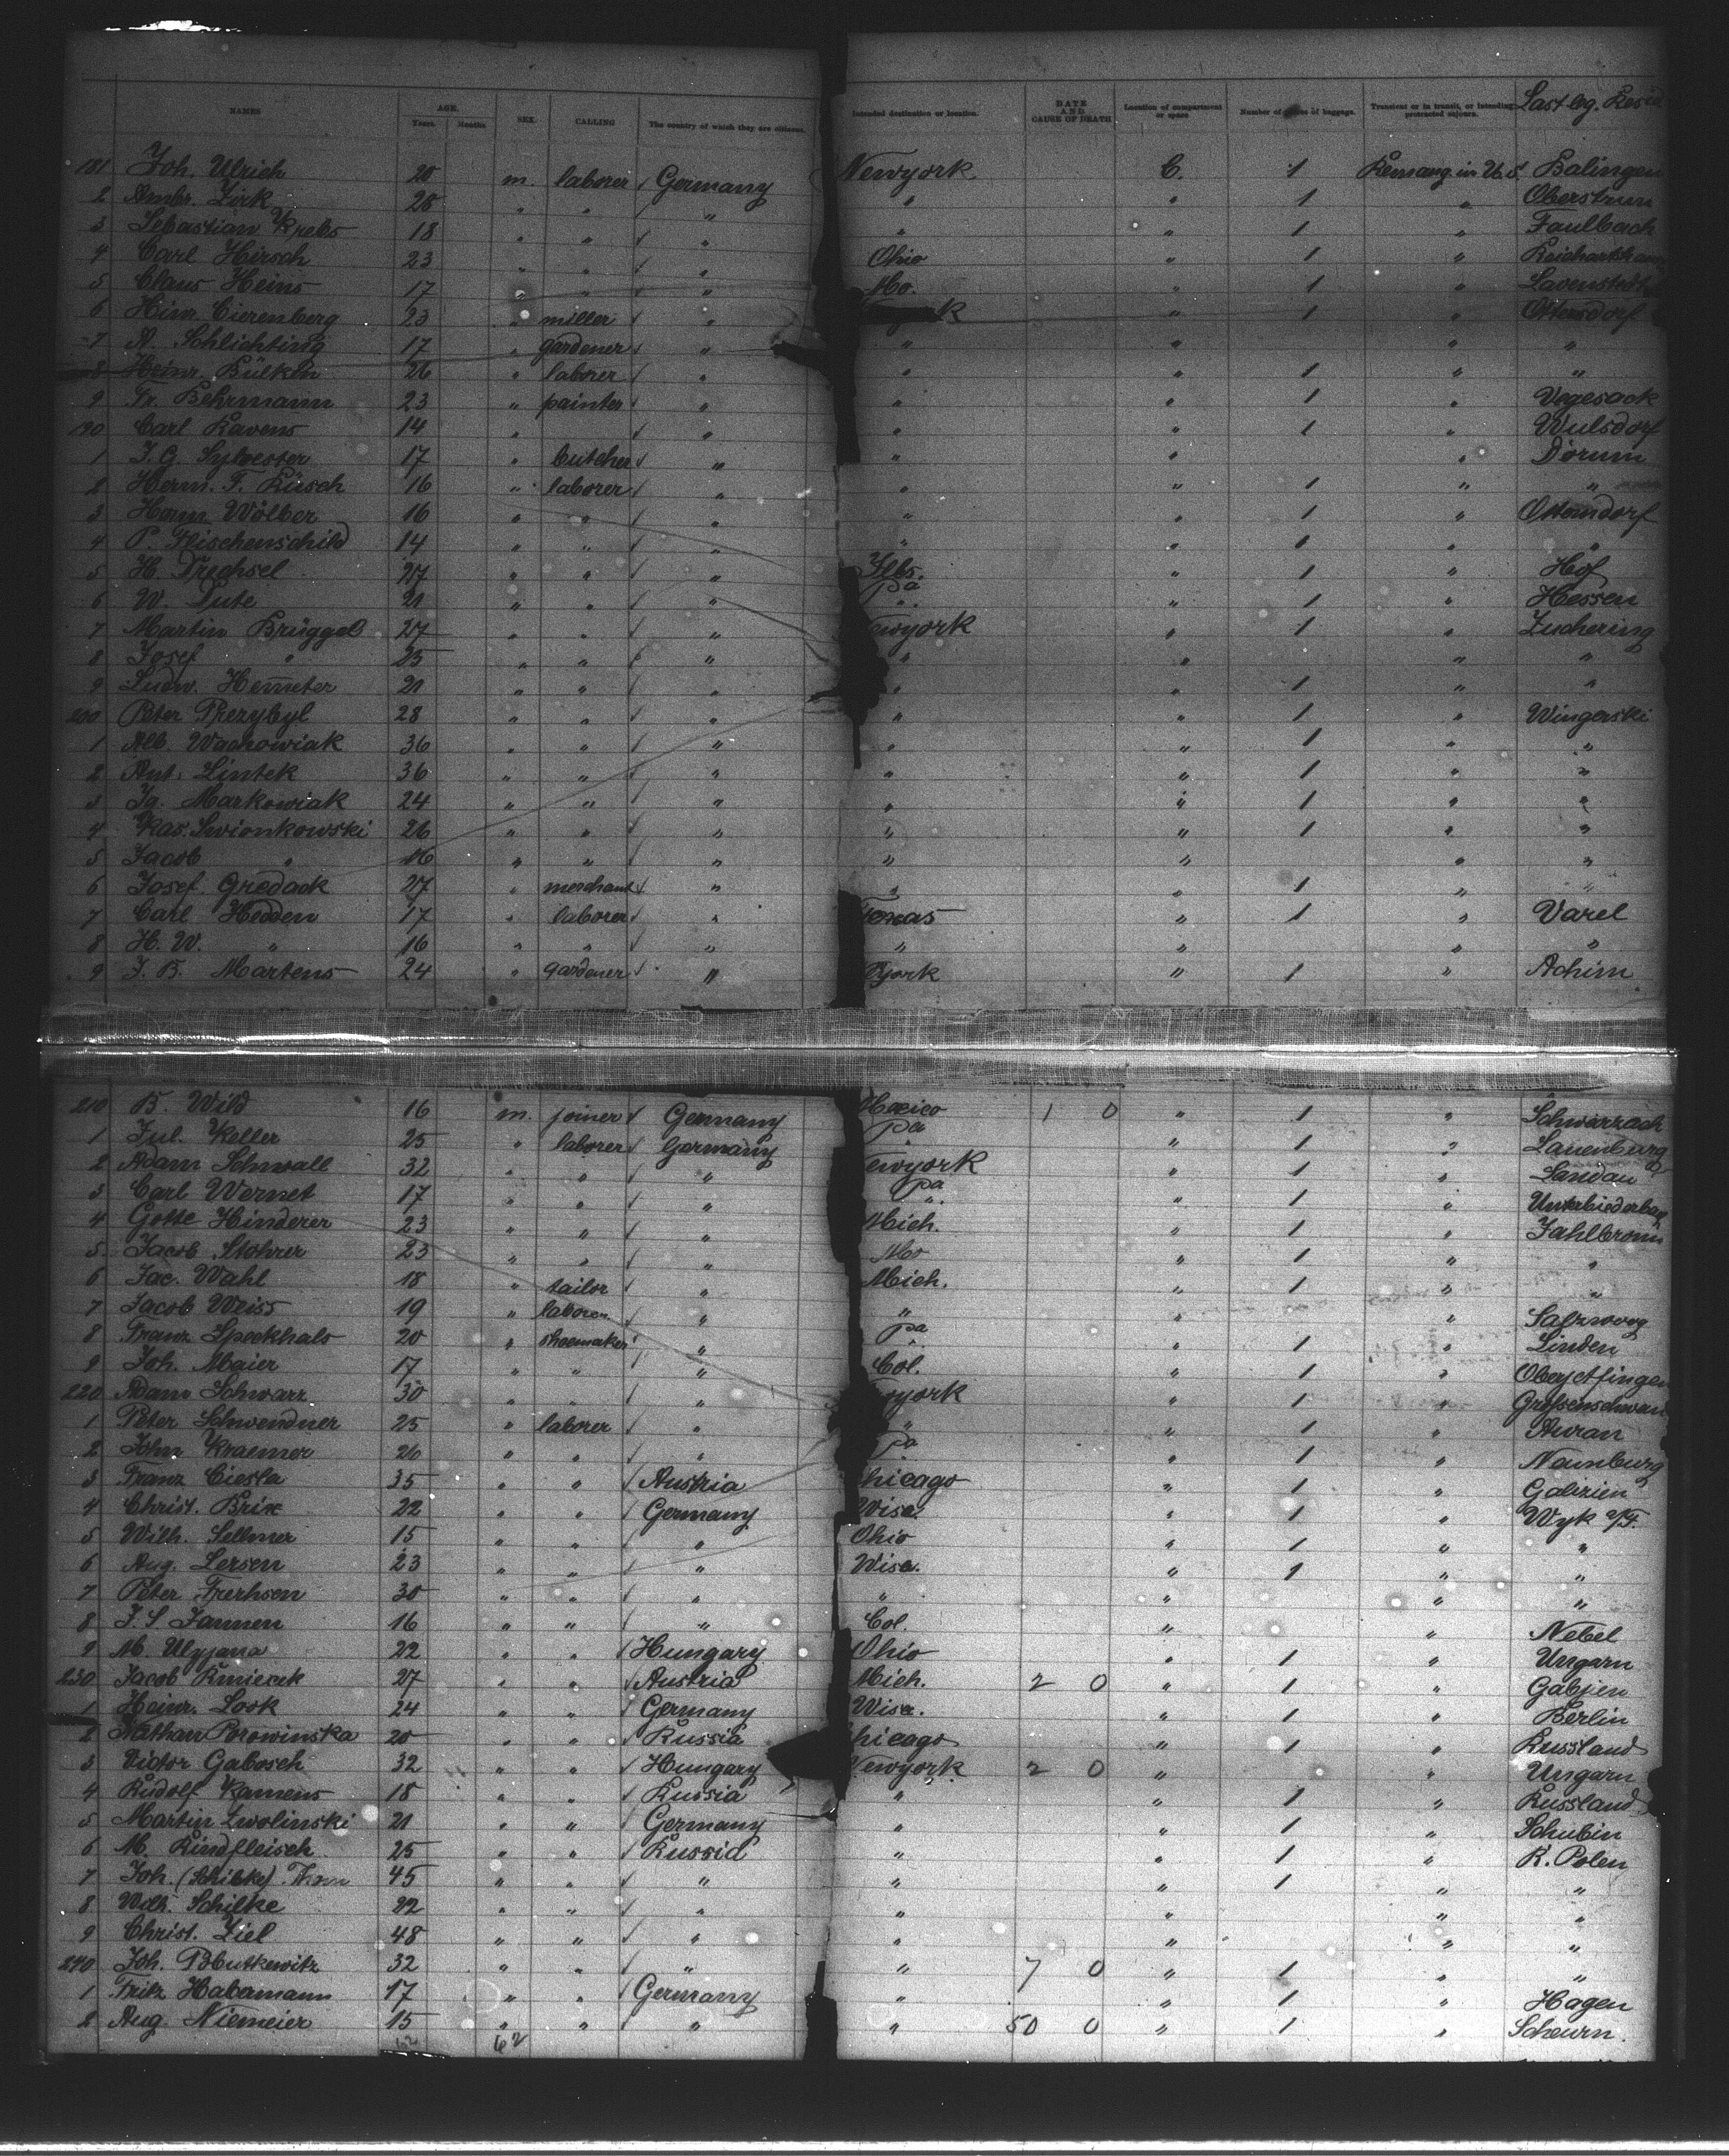 NAMES AGE. Years Months SEX. CALLING The country of which they are citizens. Intended destination or location. DATE AND CAUSE OF DEATH Location of compartment or space. Number of pieces of baggage. Transient or in transit, or intending protracted sojourn. Last leg. Resid.
181 Joh. Ulrich 20 m. laborer Germany Newyork C. 1 in U.S. Balingen
2 Ambr. Zirk 28 " " " " " 1 "
3 Sebastian Krebs 18 " " " " " 1 " Faulbach
4 Carl Hirsch 23 " " " Ohio " 1 "
5 Claus Heins 17 " " " Mo. " 1 " Lavenstedt
6 Hinr. Cierenberg 23 " miller " " 1 "
7 A. Schlichting 17 " gardener " " " " "
8 Heinr. Bülken 26 " laborer " " " 1 " "
9 Fr. Behrmann 23 " painter " " " 1 " Vegesack
190 Carl Ravens 14 " " " " 1 " Wulsdorf
1 J. G Sylvester 17 " butcher " " " " Dorum
2 Herm. F. Rüsch 16 " laborer " " " 1 " "
3 Herm. Wölber 16 " " " " " 1 " Otterndorf
4 P. 14 " " " " " 1 " "
5 H. Trechsel 27 " " " Ills. " 1 " Hof
6 W. Lute 21 " " " Pa " 1 " Hessen
7 Martin Brüggel 27 " " " ewyork " 1 " Zuchering
8 Josef " 25 " " " " " " "
9 Ludw. Hemeter 21 " " " " " 1 " "
200 Peter Przybyl 28 " " " " " 1 " Wingerski
1 Alb. Wachowiak 36 " " " " " 1 " "
2 Ant. Lintek 36 " " " " " 1 " "
3 Ig. Markowiak 24 " " " " " 1 " "
4 Kas. Swionkowski 26 " " " " " 1 " "
5 Jacob " 16 " " " " " " "
6 Josef Gredack 27 " merchant " " " 1 " "
7 Carl Hedden 17 " laborer " Texas " 1 " Varel
8 H. W. " 16 " " " " " " "
9 J. B. Martens 24 " gardener " york " 1 " Achim
210 B. Wild 16 m. joiner Germany Mexico 1 0 " 1 " Schwarzach
1 Jul. Keller 25 " laborer Germany Pa " 1 " Lauenburg
2 Adam Schwall 32 " " " ewyork " 1 " Landau
3 Carl Wernet 17 " " " Pa " 1 "
4 Gotte Hinderer 23 " " " Mich. " 1 "
5 Jacob Stohrer 23 " " " Mo " 1 " "
6 Jac. Wahl 18 " tailor " Mich. " 1 " "
7 Jacob Weiss 19 " laborer " " " "
8 Franz Speckhals 20 " shoemaker " Pa " 1 " Linden
9 Joh. Maier 17 " " " Col. " 1 "
220 Adam Schwarz 30 " " " york " 1 "
1 Peter Schwendner 25 " laborer " " " 1 "
2 John Kraemer 26 " " " Pa " 1 " Naumburg
3 Franz Ciesla 35 " " Austria hicago " 1 " Galizien
4 Christ. Brix 22 " " Germany Wisc. " 1 " Wyk a/F.
5 Wilh. Sellmer 15 " " " Ohio " 1 " "
6 Aug. Lersen 23 " " " Wisc. " 1 " "
7 Peter Frerksen 30 " " " " " " "
8 J. S Jannen 16 " " " Col. " " Nebel
9 M. Ulyjana 22 " " Hungary Ohio " 1 " Ungarn
230 Jacob Kmiecik 27 " " Austria Mich. 2 0 " 1 "
1 Heinr. Look 24 " " Germany Wisc. " 1 " Berlin
2 Nathan Borowinska 20 " " Russia hicago " 1 " Russland
3 Victor Gabosch 32 " " Hungary ewyork 2 0 " " Ungarn
4 Rudolf Kamens 18 " " Russia " " 1 " Russland
5 Martin Zwolinski 21 " " Germany " " 1 " Schubin
6 M. Rindfleisch 25 " " Russia " " 1 " R. Polen
7 Joh. (Schilke) Thom 45 " " " " " 1 " "
8 Wilh. Schilke 22 " " " " " " "
9 Christ. Ziel 48 " " " " " " "
240 Joh. Butkewitz 32 " " " " 7 0 " 1 " "
1 Fritz Habermann 17 " " Germany " " 1 " Hagen
2 Aug. Niemeier 15 " " " " 50 0 " 1 " Scheurn.
62